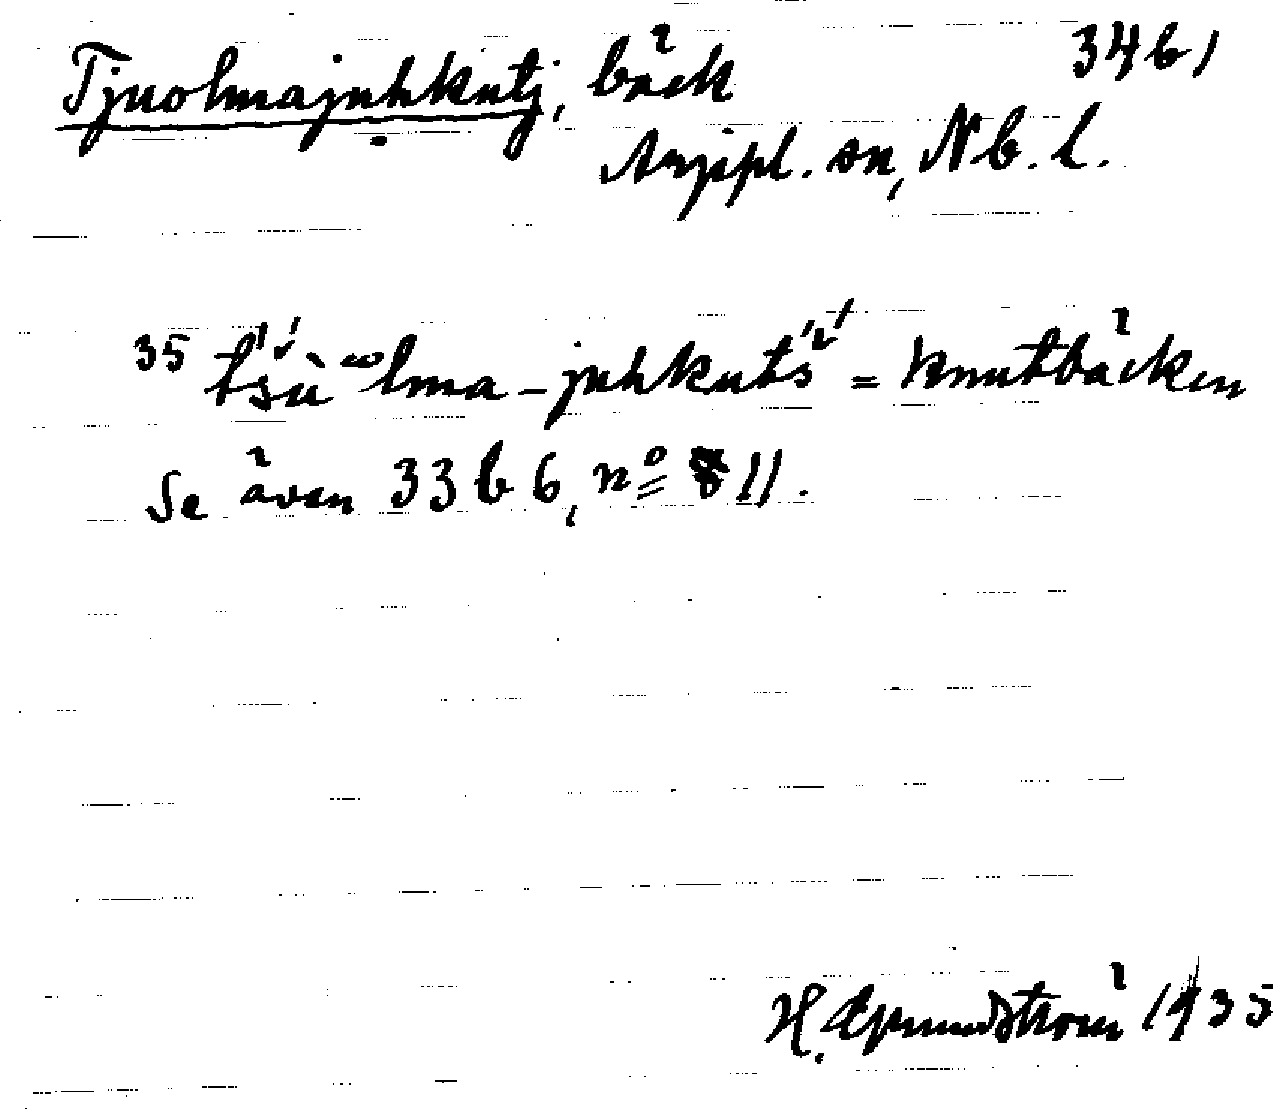 Tjuolmajuhkutj, bäck 34b1
Arjepl. sn, Nb. l.
35 tsù lma-juhkuts = knutbäcken
Se även 33 b 6, nº 11.
H. Grundström 1935